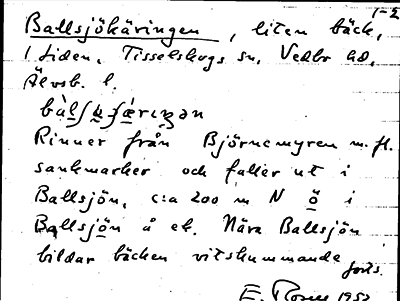 1-2
Ballsjökäringen, liten bäck,
i tiden. Tisselskogs sn, Vedbo hd,
Älvsb. l.
Rinner från Björnemyren m. fl.
sankmarker och faller ut i
Ballsjön, c:a 200 m N ö i
Ballsjön å ek. Nära Ballsjön
bildar bäcken vitskummande
forts.